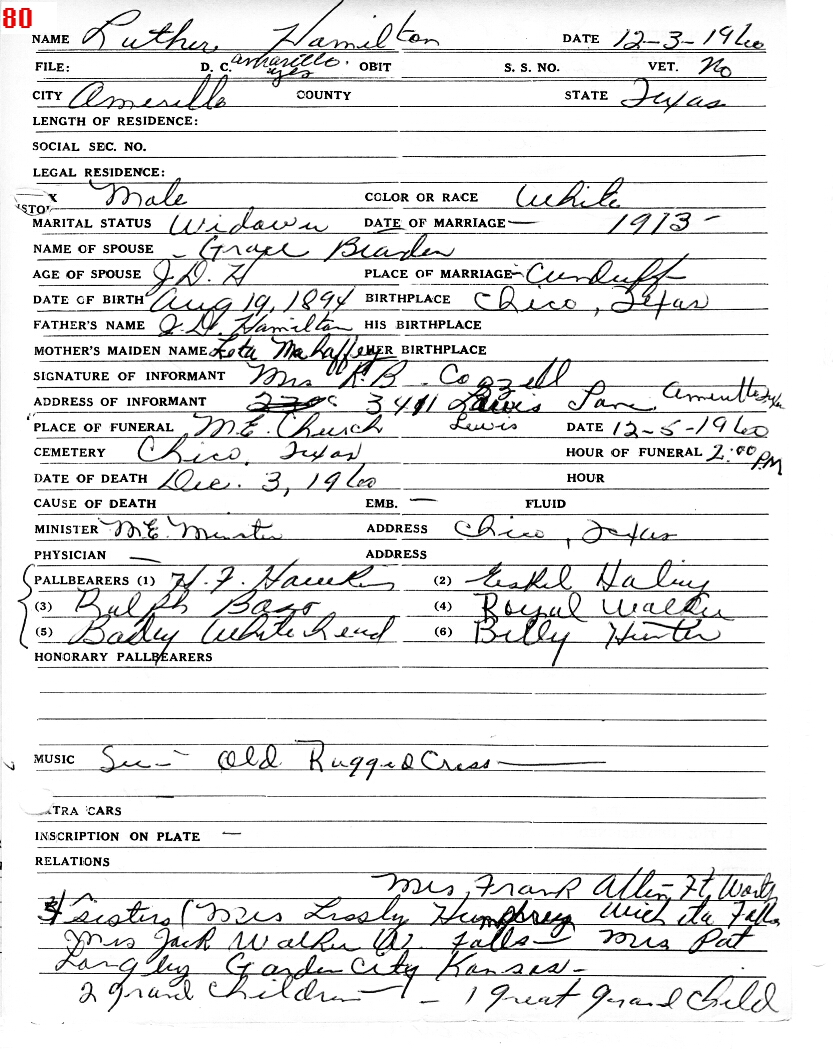 80
NAME Luther Hamilton DATE 12-3-1960
FILE: D. C. Amarillo. yes OBIT S. S. NO. VET. No
CITY Amarillo COUNTY STATE Texas
LENGTH OF RESIDENCE:
SOCIAL SEC. NO.
LEGAL RESIDENCE:
X Male COLOR OR RACE White
MARITAL STATUS Widower DATE OF MARRIAGE — 1913 -
NAME OF SPOUSE - Grace
AGE OF SPOUSE J. D. H PLACE OF MARRIAGE - Cunduff
DATE OF BIRTH Aug 19, 1894 BIRTHPLACE Chico, Texas
FATHER'S NAME J. D. Hamilton HIS BIRTHPLACE
MOTHER'S MAIDEN NAME Leta Mahaffey HER BIRTHPLACE
SIGNATURE OF INFORMANT Mrs R. B. Cozzell
ADDRESS OF INFORMANT 3411 Lewis Lane,
PLACE OF FUNERAL M.E. Church Lewis DATE 12-5-1960
CEMETERY Chico, Texas HOUR OF FUNERAL 2:00 PM
DATE OF DEATH Dec. 3, 1960 HOUR
CAUSE OF DEATH EMB. — FLUID
MINISTER M.E. Minister ADDRESS Chico, Texas
PHYSICIAN — ADDRESS
PALLBEARERS (1) H. F. Hawkins (2) Haley
(3) Ralph (4) Royal Walker
(5) Whitehead (6) Billy Hunter
HONORARY PALLBEARERS
MUSIC Old Rugged Cross
TRA CARS
INSCRIPTION ON PLATE —
RELATIONS
Mrs, Frank Allen Ft, Worth
4 sisters (Mrs Humphrey Wichita Falls
Mrs Jack Walker W. Falls — Mrs Pat
Langley Garden City Kansas -
2 grand Children — 1 Great grand Child